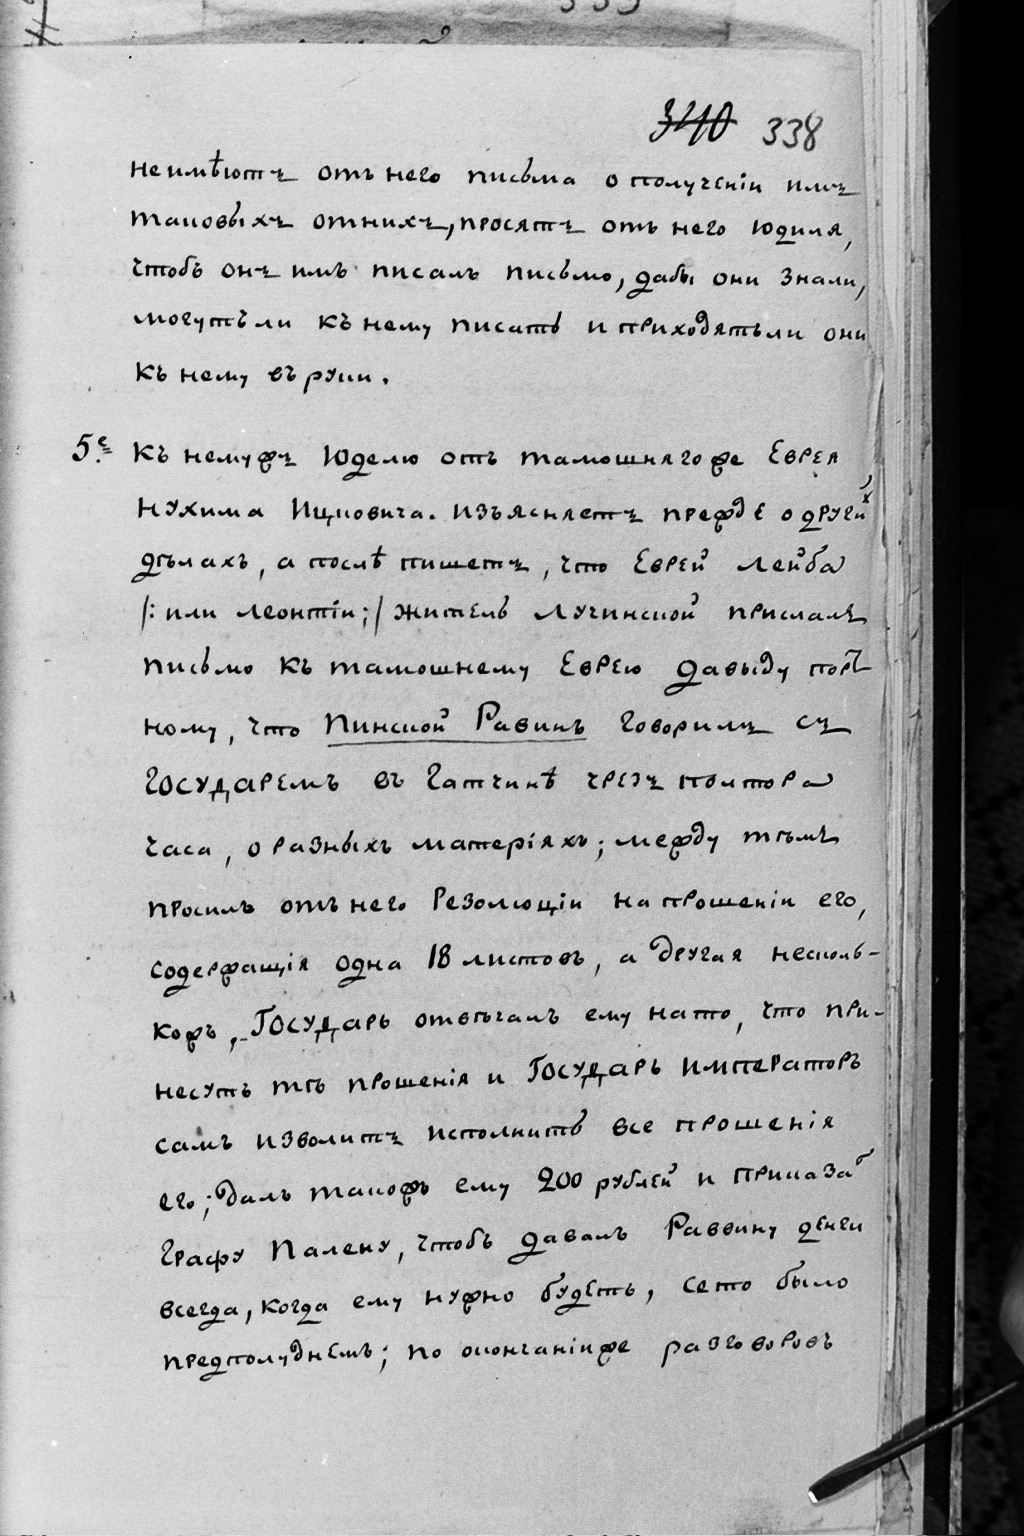 340 338
неимѣютъ отъ него письма о полученіи имъ
таковыхъ отнихъ, просятъ отъ него Юдиля,
чтобъ онъ имъ писалъ письмо, дабы они знали,
могутъ ли къ нему писать и приходятъ ли они
къ нему въ руки.
5.е Къ немужъ Юделю отъ тамошнягоже Еврея
Нухима Ицковича. изъясняетъ прежде о другихъ
дѣлахъ, а послѣ пишетъ, что Еврей Лейба
/: или Леонтіи:/ житель Лучинской прислалъ
письмо къ тамошнему Еврею Давыду порт
ному, что Пинской Равинъ говорилъ съ
Государемъ въ Гатчинѣ чрезъ полтора
часа, о разныхъ матеріяхъ; между тѣмъ
просилъ отъ него резолюціи на прошеніи его,
содержащія одна 18 листовъ, а другая несколь-
кожъ, Государь отвѣчалъ ему на то, что при-
несутъ тѣ прошенія и Государь Императоръ
самъ изволитъ исполнить все прошенія
его; далъ такожъ ему 200 рублей и приказа
Графу Палену, чтобъ давалъ Раввину денги
всегда, когда ему нужно будетъ, сето было
предполуднемъ; по окончаніиже разговоровъ